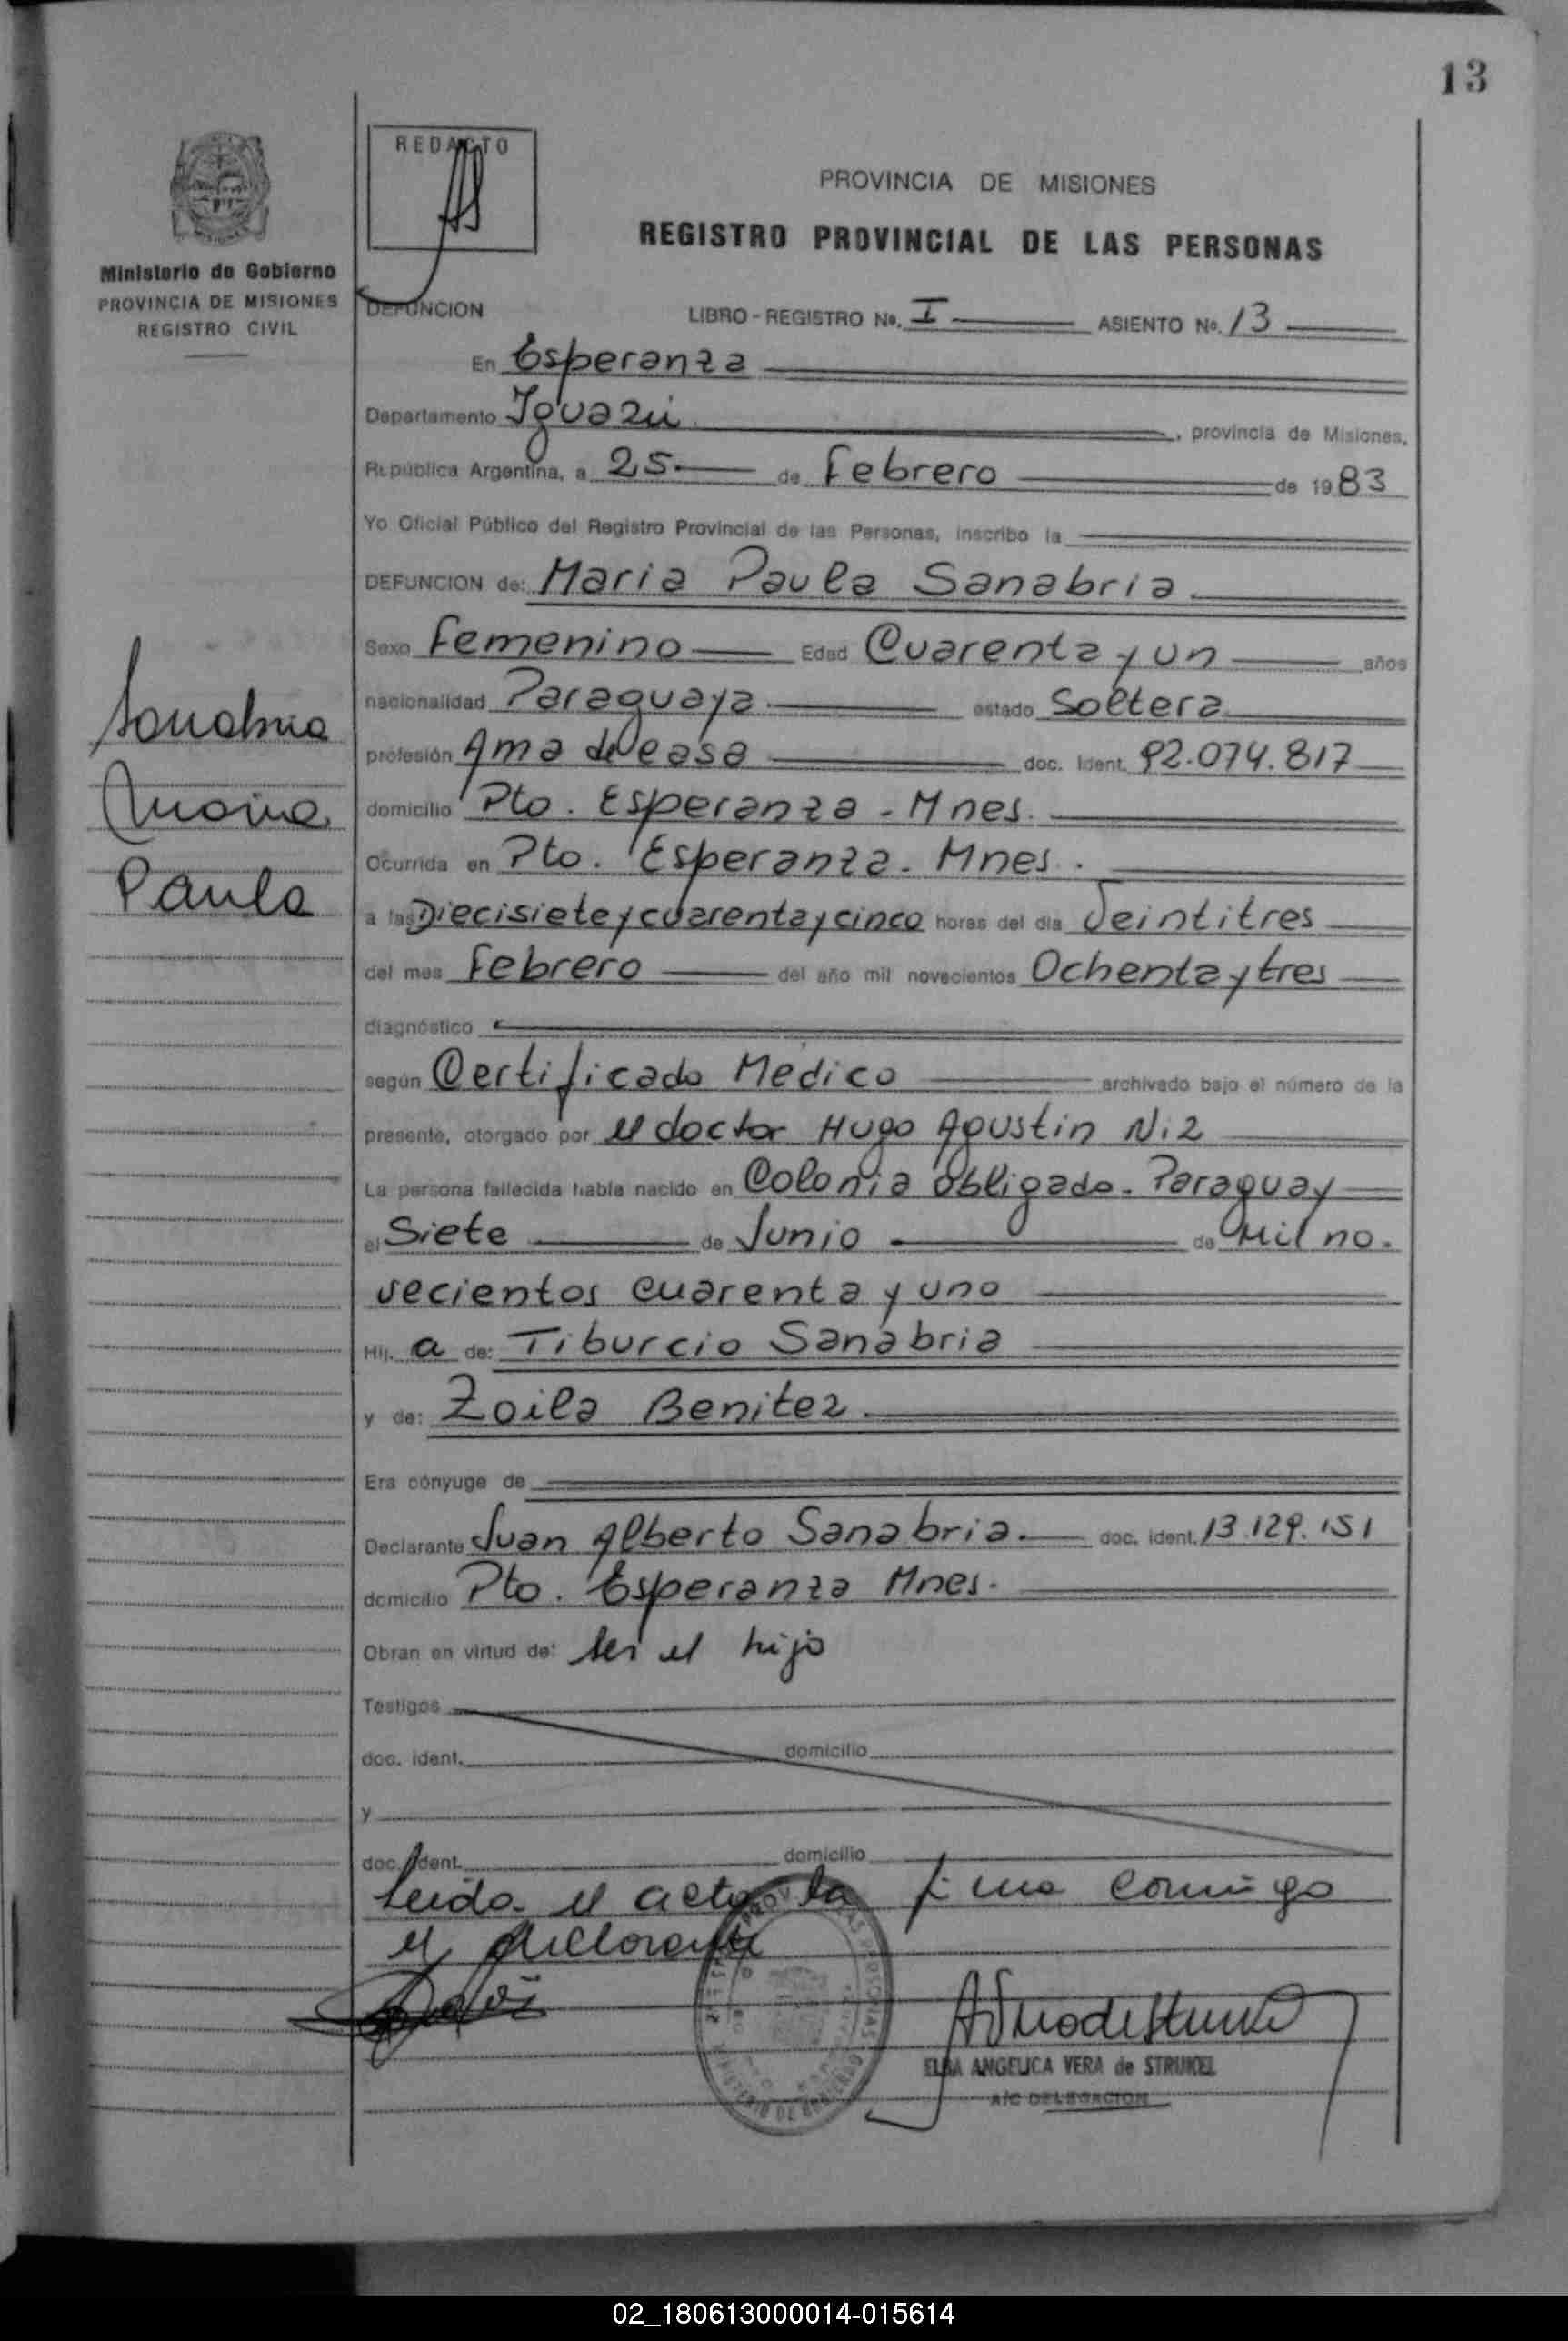 13
REDACTO
PROVINCIA DE MISIONES
REGISTRO PROVINCIAL DE LAS PERSONAS
Ministerio de Gobierno
PROVINCIA DE MISIONES
REGISTRO CIVIL
DEFUNCION LIBRO - REGISTRO No. I ASIENTO No. 13
En Esperanza
Departamento Iguazú, provincia de Misiones,
República Argentina, a 25 de Febrero de 1983
Yo Oficial Público del Registro Provincial de las Personas, inscribo la
DEFUNCION de: Maria Paula Sanabria
Sexo Femenino Edad Cuarenta y un años
nacionalidad Paraguaya estado Soltera
Sanabria
profesión Ama de casa doc. Ident. 92.074.817
Maria
domicilio Pto. Esperanza - Mnes.
Ocurrida en Pto. Esperanza - Mnes.
Paula
a las Diecisiete y cuarenta y cinco horas del día Veintitres
del mes Febrero del año mil novecientos Ochenta y tres
diagnóstico
según Certificado Medico archivado bajo el número de la
presente, otorgado por el doctor Hugo Agustin Niz
La persona fallecida había nacido en Colonia Obligado - Paraguay
el Siete de Junio de Mil no.
vecientos cuarenta y uno
Hij. a de: Tiburcio Sanabria
y de: Zoila Benitez
Era cónyuge de
Declarante Juan Alberto Sanabria. doc. ident. 13.129.151
domicilio Pto. Esperanza Mnes.
Obran en virtud de: ser el hijo
Testigos
doc. ident. domicilio
y
doc. ident. domicilio
Leida el acta la firma comigo
el declarante
ELBA ANGELICA VERA de STRUKEL
A/C DELEGACION
02_180613000014-015614